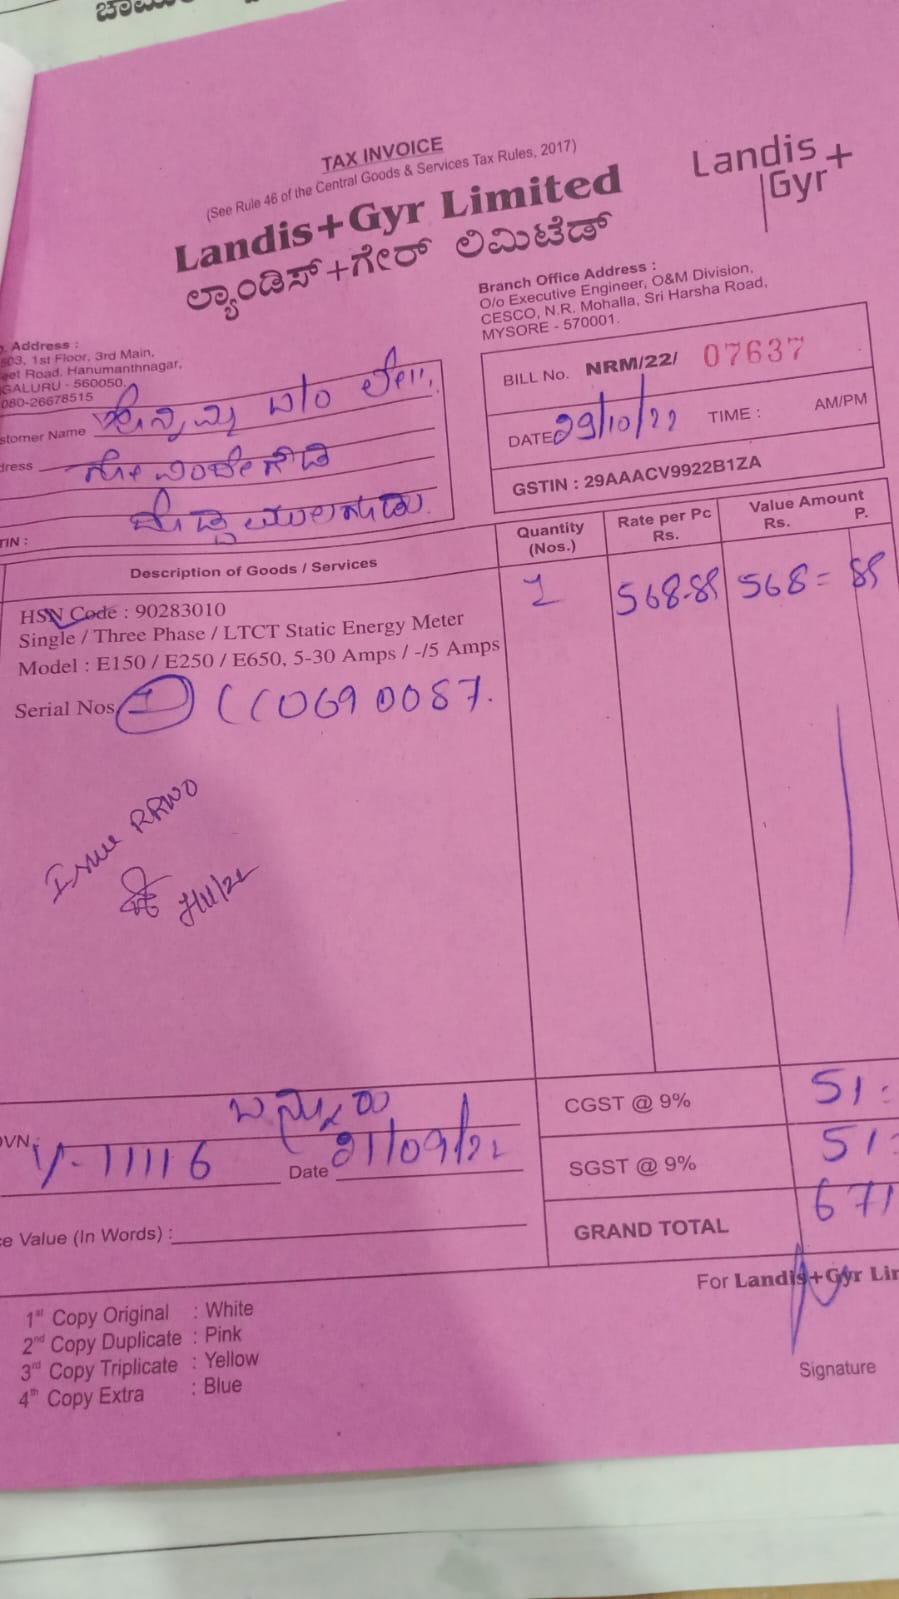 TAX INVOICE
(See Rule 46 of the Central Goods & Services Tax Rules, 2017)
Landis+Gyr Limited
ಲ್ಯಾಂಡಿಸ್+ಗೇರ್ ಲಿಮಿಟೆಡ್
Landis+
Gyr
Branch Office Address :
O/o Executive Engineer, O&M Division,
CESCO, N.R. Mohalla, Sri Harsha Road,
MYSORE - 570001.
Address :
503, 1st Floor, 3rd Main,
eet Road, Hanumanthnagar,
GALURU - 560050.
080-26678515
BILL No. NRM/22/ 07637
DATE 29/10/22 TIME : AM/PM
GSTIN : 29AAACV9922B1ZA
stomer Name
dress
TIN :
Description of Goods / Services
Quantity (Nos.)
Rate per Pc Rs.
Value Amount Rs. P.
HSN Code : 90283010
Single / Three Phase / LTCT Static Energy Meter
Model : E150 / E250 / E650, 5-30 Amps / -/5 Amps
1 568-85 568= 85
Serial Nos
Issue RRNO
CGST @ 9% 51
SGST @ 9% 51
GRAND TOTAL 671
ಬನ್ನೂರು
OVN V-11116 Date 21/09/22
ce Value (In Words) :
For Landis+Gyr Lir
Signature
1st Copy Original : White
2nd Copy Duplicate : Pink
3rd Copy Triplicate : Yellow
4th Copy Extra : Blue